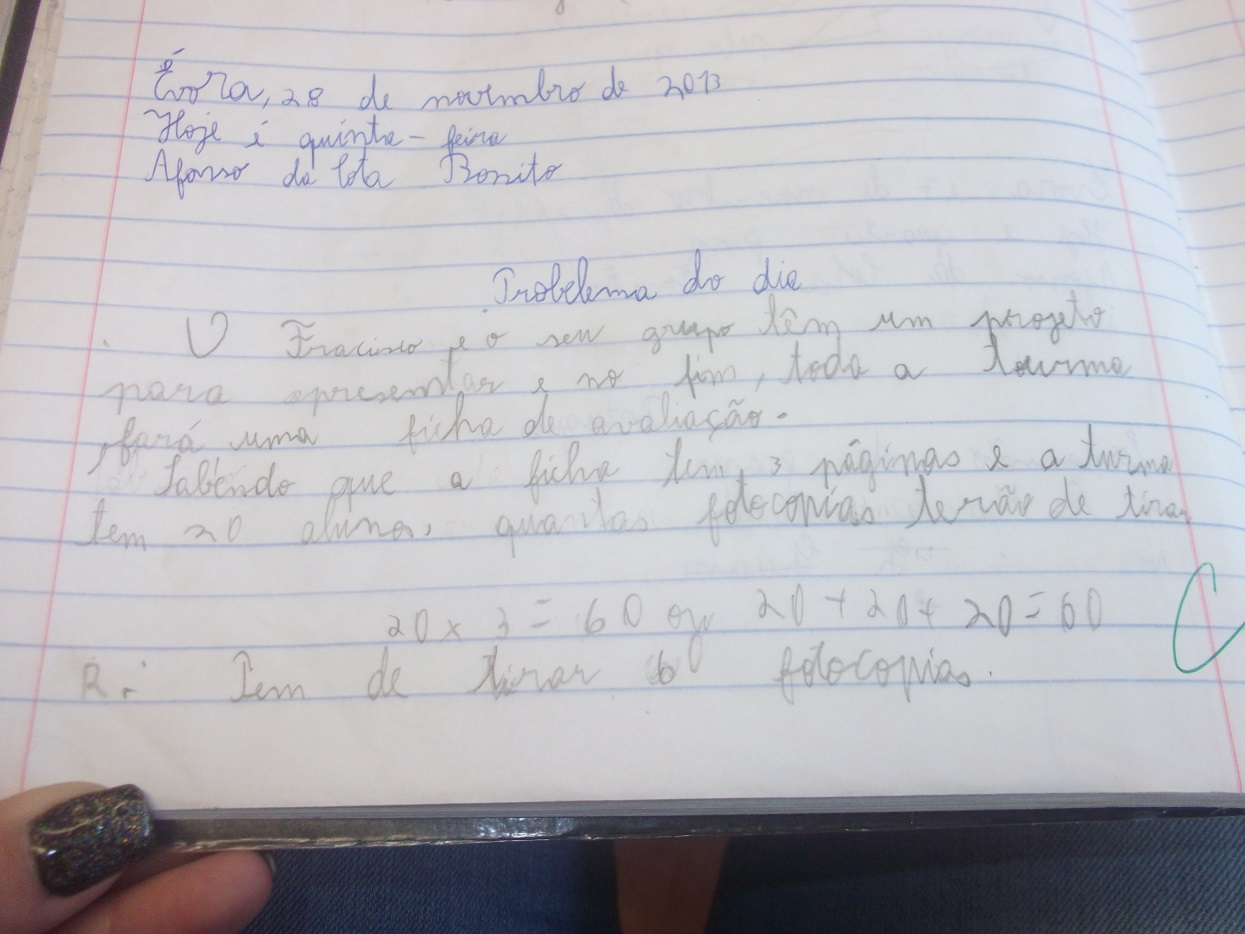 Évora, 28 de novembro de 2013
Hoje é quinta-feira
Afonso da Bonito
Probelema do dia
O Fracisco e o seu grupo têm um projeto
para apresentar e no fim, toda a tourma
fará uma ficha de avaliação.
Sabendo que a ficha tem 3 páginas e a turma
tem 20 alunos, quantas fotocopias terão de tirar
20 x 3 = 60 ou 20 + 20 + 20 = 60
R.: Tem de tirar 60 fotocopias.